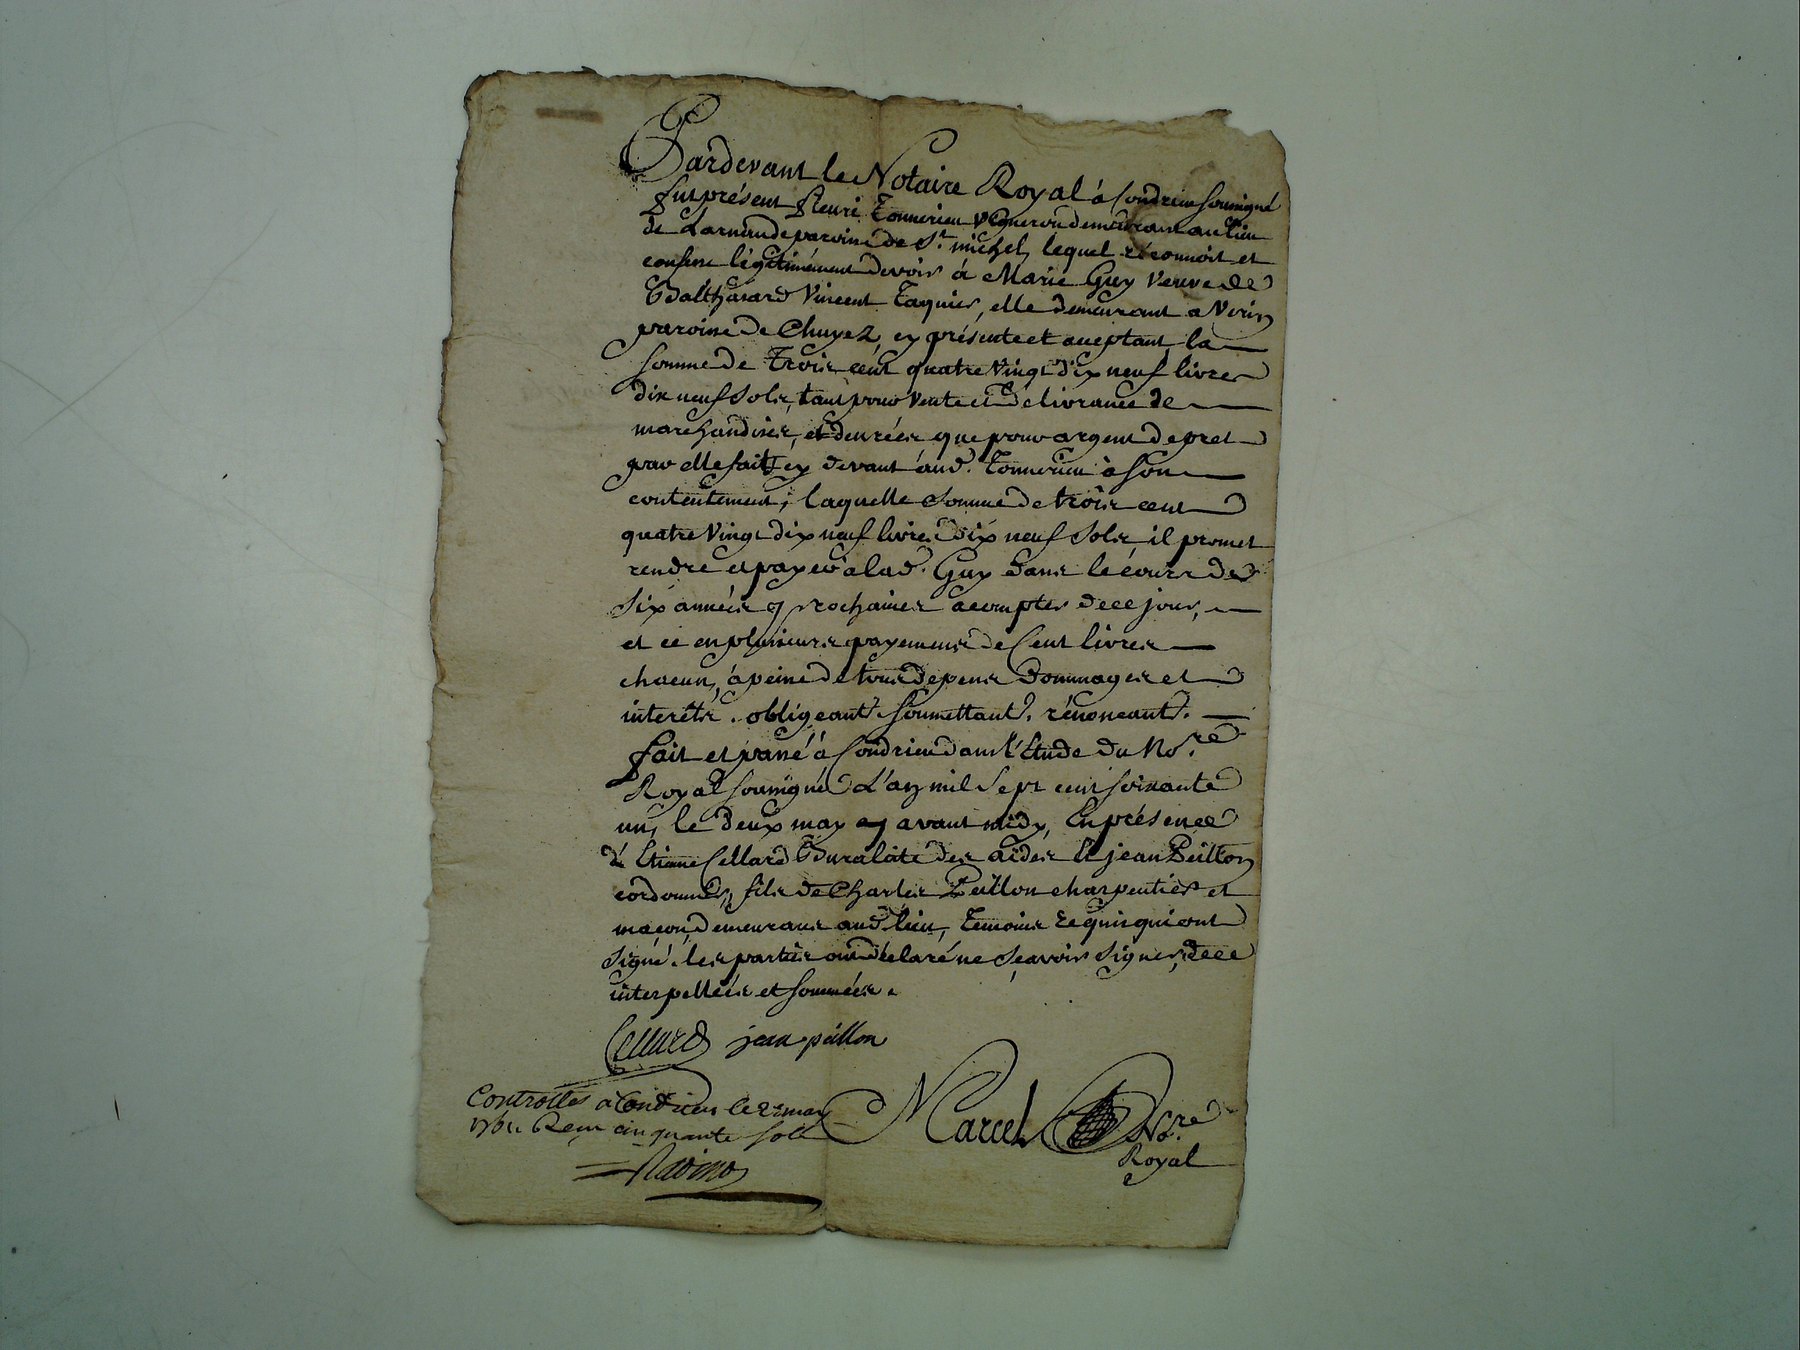 Pardevant le Notaire Royal á Condrieu soussigné
fut présent fleuri Tonnerieu Vigneron demeurant au lieu
de Larnaude paroisse de St. michel, lequel réconnoit et
confesse légitimément devoir á Marie Guy Veuve de
Balthazard Vincent Taquier, elle demeurant a Verin
paroisse de Chuyez, cy présente et aceptant la
somme de Trois cent quatre Vingt dix neuf livres
dix neuf Sols, tant pour Vente et délivrance de
marchandises, et denrées que pour argent de pret
par elle fait cy devant aud. Tonnerieu à son
contentement, laquelle Somme de trois cent
quatre Vingt dix neuf livres dix neuf Sols, il promet
rendre et payer à lad. Guy dans le cours de
Six années prochaines a compter de ce jour,
et ce en plusieurs payemens de Cent livres
chacun, á peine de tous depens dommages et
interêts. obligeant. Soumettant. rénonceant.
fait et passé á Condrieu dans l'Etude du No.re
Royal soussigné L'an mil Sept cent soixante
un, le deux may avant midy, En présence
d'Etienne Cellard Buraliste des aides & jean Peillon
cordonnier, fils de Charles Peillon charpentier et
maçon, demeurans aud. lieu, Témoins requis qui ont
Signé. les parties ont déclaré ne Sçavoir Signer, de ce
interpellées et sommées.
Cellard jean peillon
Controllé a Condrieu le 2 may
1761. Reçu cinquante sols
Marcel No.re
Royal